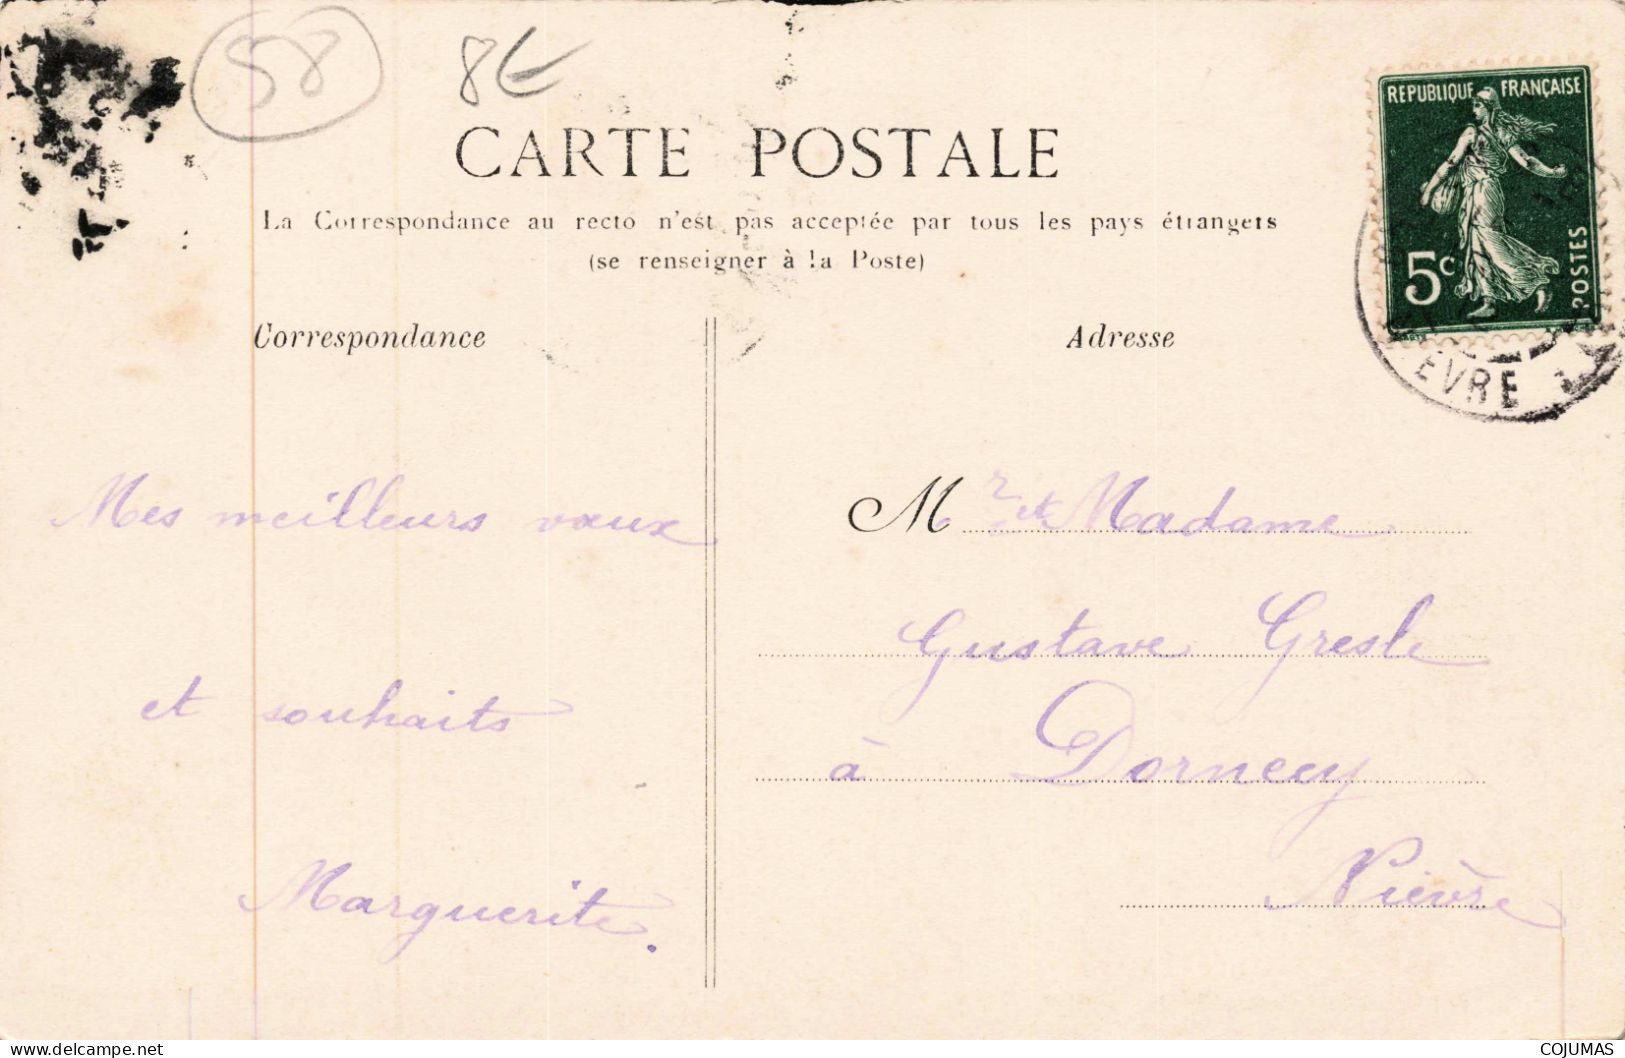 58
8€
CARTE POSTALE
La Correspondance au recto n'est pas acceptée par tous les pays étrangers
(se renseigner à la Poste)
REPUBLIQUE FRANÇAISE
5c
POSTES
EVRE
Correspondance
Adresse
Mes meilleurs vœux
et souhaits
Marguerite.
Mr et Madame
Gustave Gresle
à Dornecy
Nièvre
COJUMAS